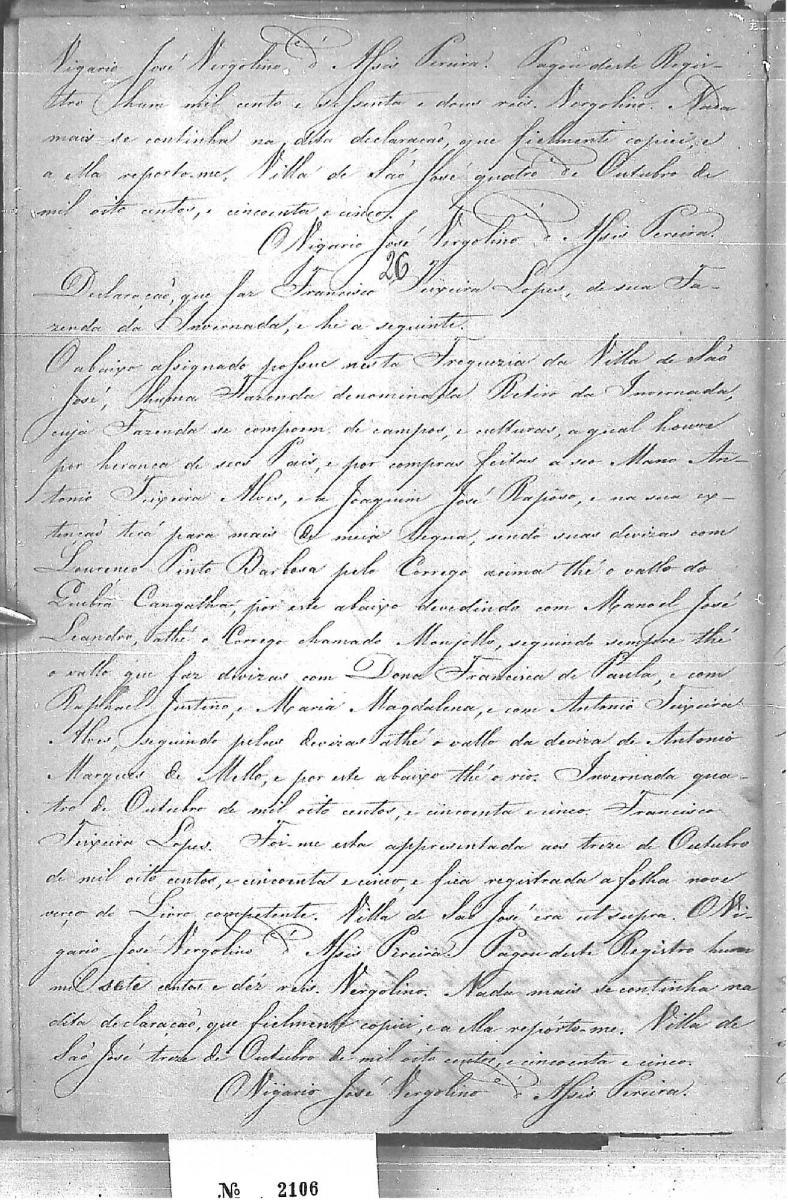 Vigario José Vergolino d'Assis Pereira. Pagou deste Regis-
tro hum mil cento e sessenta e dous reis. Vergolino. Nada
mais se continha na dita declaração, que fielmente copiei, e
a ella reporto-me. Villa de São José quatro de Outubro de
mil oito centos, e cincoenta e cinco.
O Vigario José Vergolino d'Assis Pereira.
26
Declaração, que faz Francisco Teixeira Lopes, de sua Fa-
zenda da Invernada, e hé a seguinte.
O abaixo assignado possue nesta Freguezia da Villa de São
José, huma Fazenda denominada Retiro da Invernada,
cuja Fazenda se compoem de campos, e culturas, a qual houve
por herança de seos Pais, e por compras feitas a seo Mano An-
tonio Teixeira Alves, e a Joaquim José Raposo, e na sua ex-
tenção terá para mais de meia legua, sendo suas devizas com
Lourenco Pinto Barbosa pelo Corrego acima thé o vallo do
Quebra Cangalha, por este abaixo devedindo com Manoel José
Leandro, athé o Corrego chamado Monjollo, seguindo sempre thé
o vallo que faz devizas com Dona Francisca de Paula, e com
Raphael Justino, e Maria Magdalena, e com Antonio Teixeira
Alves, seguindo pelas devizas athé o vallo da deviza de Antonio
Marques de Mello, e por este abaixo thé o rio. Invernada qua-
tro de Outubro de mil oito centos, e cincoenta e cinco. Francisco
Teixeira Lopes. Foi-me esta appresentada aos treze de Outubro
de mil oito centos, e cincoenta e cinco, e fica registrada a folha nove
verço do Livro competente. Villa de São José era ut supra. O Vi-
gario José Vergolino d'Assis Pereira. Pagou deste Registro hum
mil sete centos e déz reis. Vergolino. Nada mais se continha na
dita declaração, que fielmente copiei, e a ella repórto-me. Villa de
São José treze de Outubro de mil oito centos, e cincoenta e cinco.
O Vigario José Vergolino d'Assis Pereira.
№ 2106